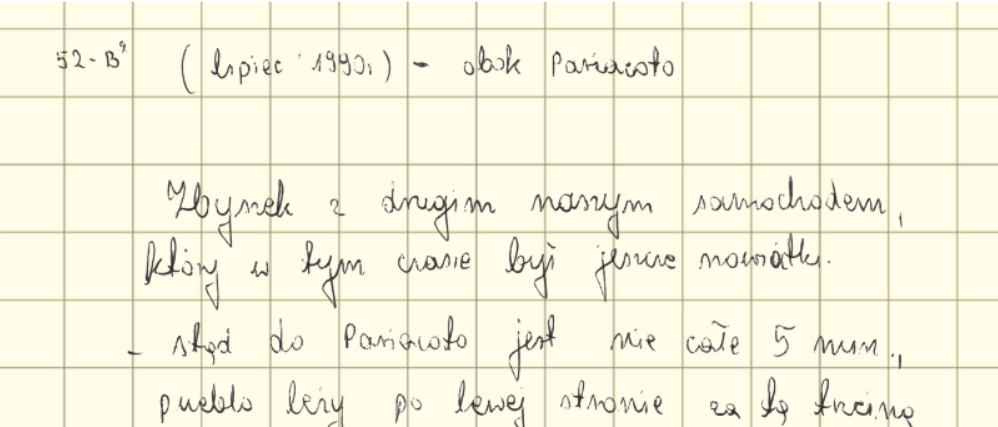 52-B⁹ (lipiec 1990r) - obok Pariacoto
Zbynek z drugim naszym samochodem,
który w tym czasie był jeszcze nowiutki.
- stąd do Pariacoto jest nie całe 5 min.,
pueblo leży po lewej stronie za tą trzciną